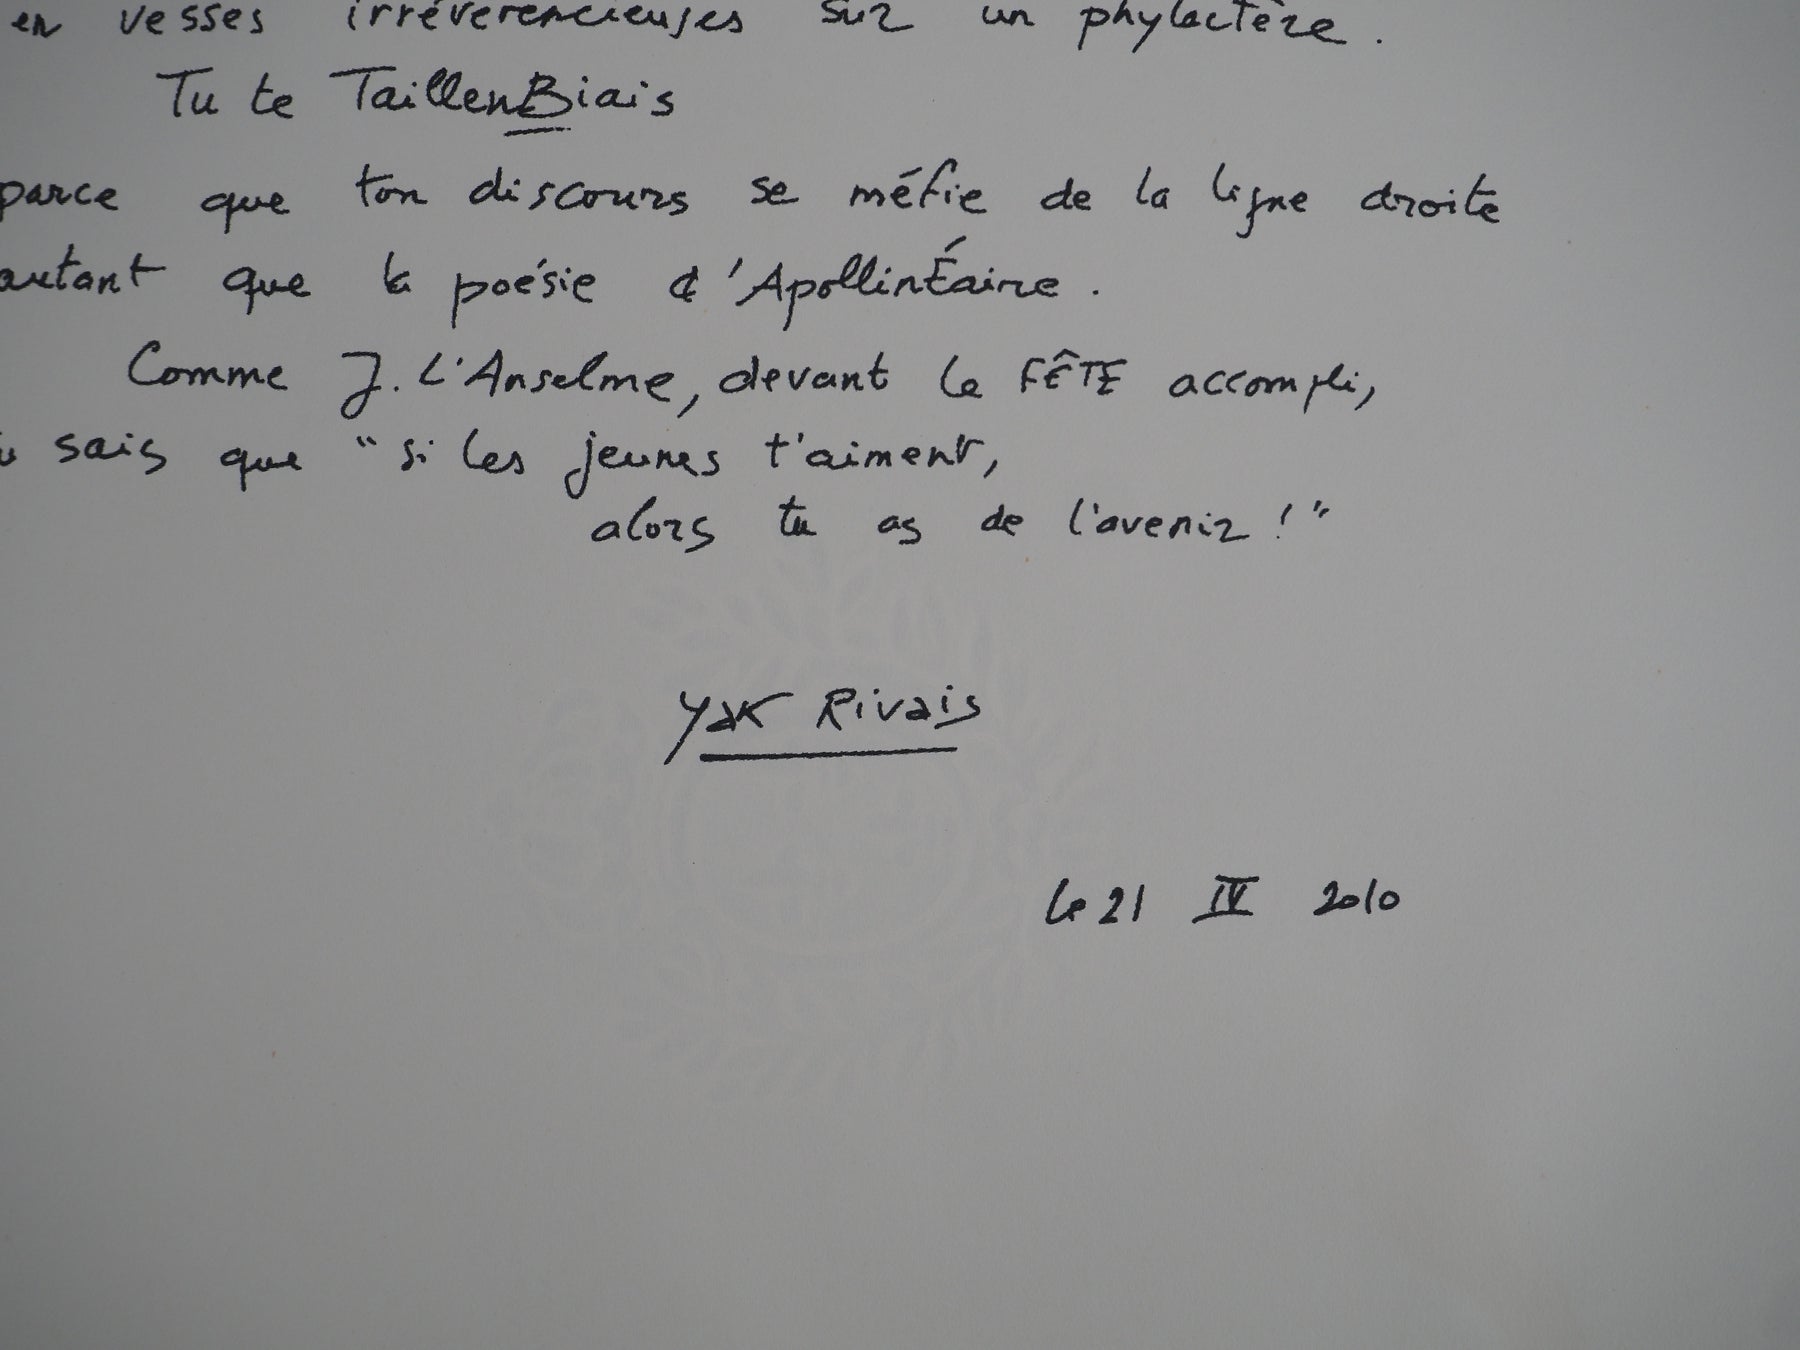 en vesses irréverencieuses sur un phylactère.
Tu te TaillenBiais
parce que ton discours se méfie de la ligne droite
autant que la poésie d'ApollinÉaire.
Comme J. L'Anselme, devant le FÊTE accompli,
sais que "si les jeunes t'aiment,
alors tu as de l'avenir!"
Yak Rivais
le 21 IV 2010